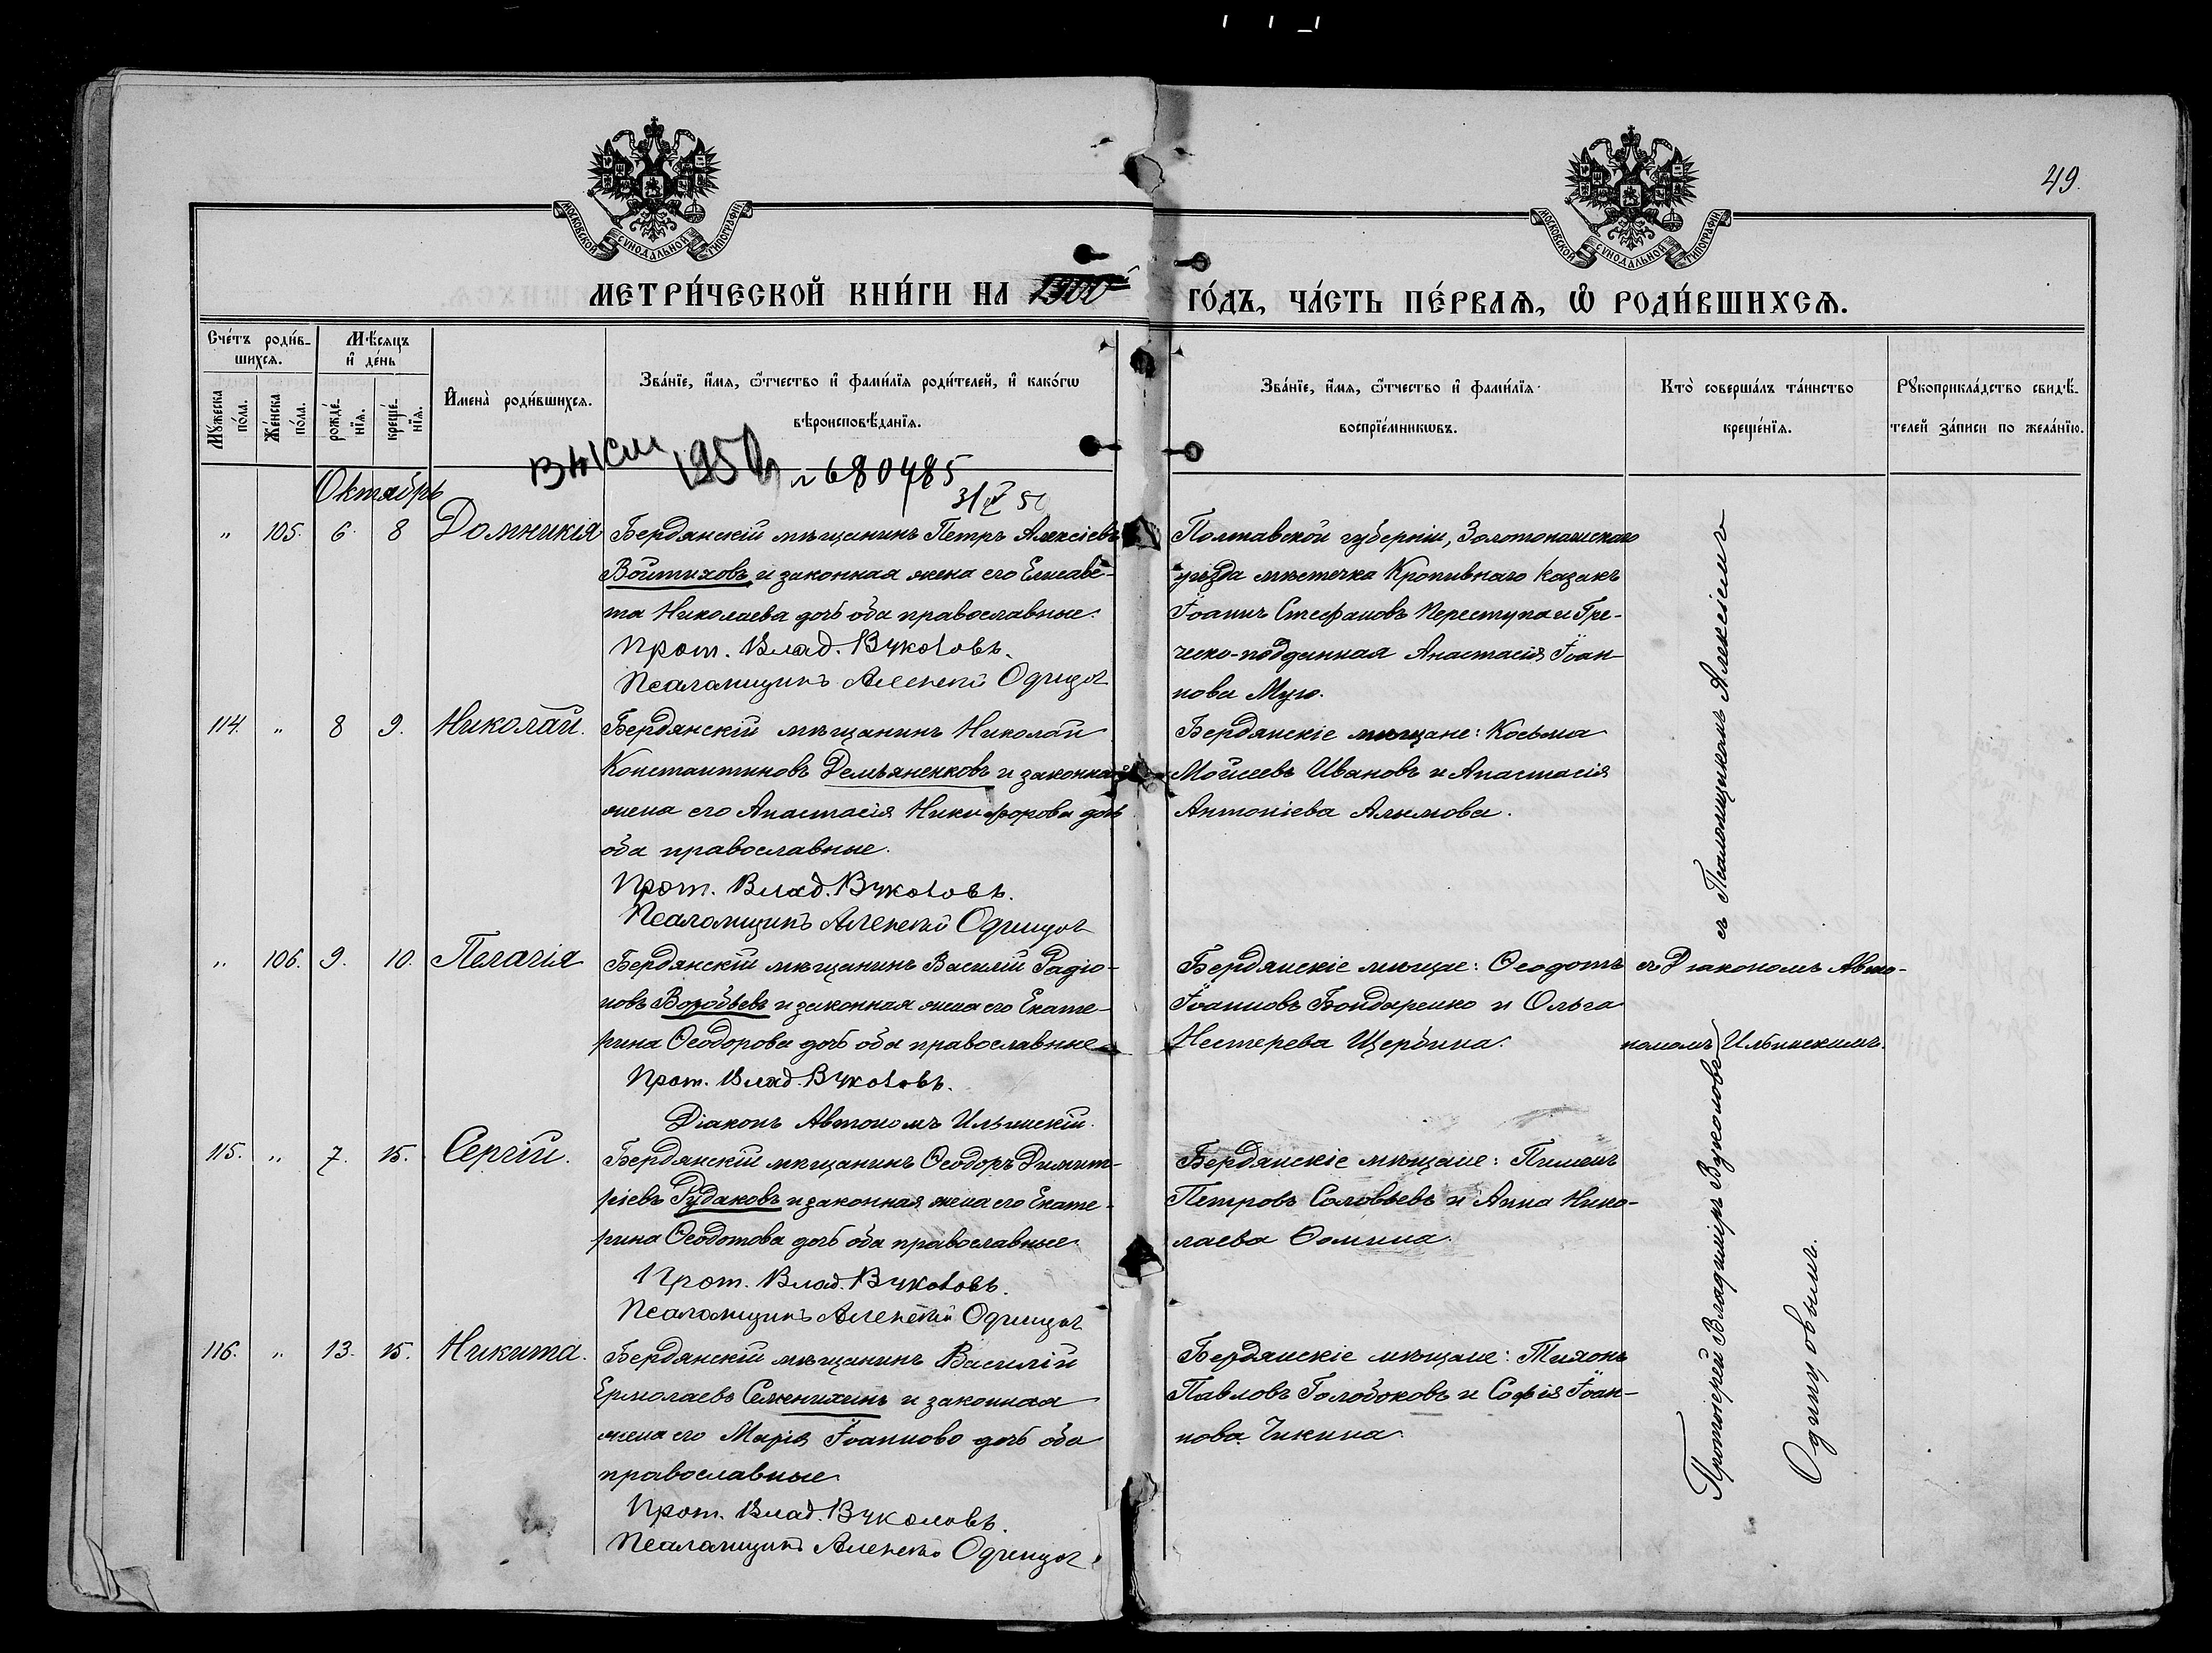 49.
МОСКОВСКОЙ СѴНОДАЛЬНОЙ ТИПОГРАФІИ
МОСКОВСКОЙ СѴНОДАЛЬНОЙ ТИПОГРАФІИ
МЕТРИ́ЧЕСКОЙ КНИ́ГИ НА 1900й ГО́ДЪ, ЧА́СТЬ ПЕ́РВАѦ, Ѡ РОДИ́ВШИХСѦ.
Сче́тъ роди́в-
шихсѧ.
Мѣ́сяцъ
и҆ де́нь
Мꙋ́жеска по́ла.
Же́нска по́ла.
рожде́-
нїѧ.
креще́-
нїѧ.
И҆мена̀ роди́вшихсѧ.
Зва́нїе, и҆́мѧ, ѻ҆́тчество и҆ фами́лїѧ роди́телей, и҆ како́гѡ
вѣроисповѣ́данїѧ.
Зва́нїе, и҆́мѧ, ѻ҆́тчество и҆ фами́лїѧ
воспрїе́мникѡвъ.
Кто̀ соверша́лъ та́инство
креще́нїѧ.
Рꙋкоприкла́дство свидѣ́-
телей за́писи по жела́нїю.
1950 № 680485
31/V 50
Октябрь
" 105. 6. 8 Домникія
Бердянскій мѣщанинъ Петръ Алексіевъ
Войтиховъ и законная жена его Елисаве-
та Николаева дочь оба православные.
Прот. Влад. Вуколовъ.
Псаломщикъ Алексѣй Одинцов
Полтавской губерніи, Золотоношскаго
уѣзда мѣстечка Кропивнаго казакъ
Іоаннъ Стефановъ Переступа и Гре-
ческо-подданная Анастасія Іоан-
нова Музо.
114. " 8 9. Николай.
Бердянскій мѣщанинъ Николай
Константиновъ Демьяненковъ и законная
жена его Анастасія Никифорова дочь
оба православные.
Прот. Влад. Вуколовъ.
Псаломщикъ Алексѣй Одинцов
Бердянскіе мѣщане: Косьма
Мойсеевъ Ивановъ и Анастасія
Антоніева Алимова.
" 106. 9. 10. Пелагія
Бердянскій мѣщанинъ Василій Радіо-
новъ Воробьевъ и законная жена его Екате-
рина Ѳеодорова дочь оба православные
Прот. Влад. Вуколовъ.
Діаконъ Автономъ Ильинскій.
Бердянскіе мѣщане: Ѳеодотъ
Іоанновъ Бондаренко и Ольга
Нестерева Щербина.
съ Діакономъ Авто-
номомъ Ильинскимъ.
115. " 7. 15. Сергій.
Бердянскій мѣщанинъ Ѳеодоръ Димит-
ріевъ Рудаковъ и законная жена его Екате-
рина Ѳеодотова дочь оба православные
Прот. Влад. Вуколовъ.
Псаломщикъ Алексѣй Одинцов
Бердянскіе мѣщане: Пименъ
Петровъ Соловьевъ и Анна Нико-
лаева Ѳомина.
116. " 13. 15. Никита.
Бердянскій мѣщанинъ Василій
Ермолаевъ Семенихинъ и законная
жена его Марія Іоаннова дочь оба
православные
Прот. Влад. Вуколовъ.
Псаломщикъ Алексѣй Одинцов
Бердянскіе мѣщане: Тихонъ
Павловъ Голобоковъ и Софія Іоан-
нова Чикина.
Протоіерей Владимиръ Вуколовъ съ Псаломщикомъ Алексіемъ
Одинцовымъ.